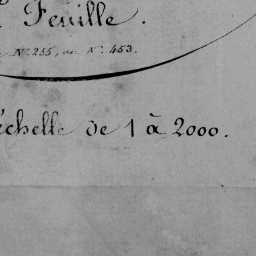 Feuille.
Nº 255, au Nº 453.
échelle de 1 à 2000.